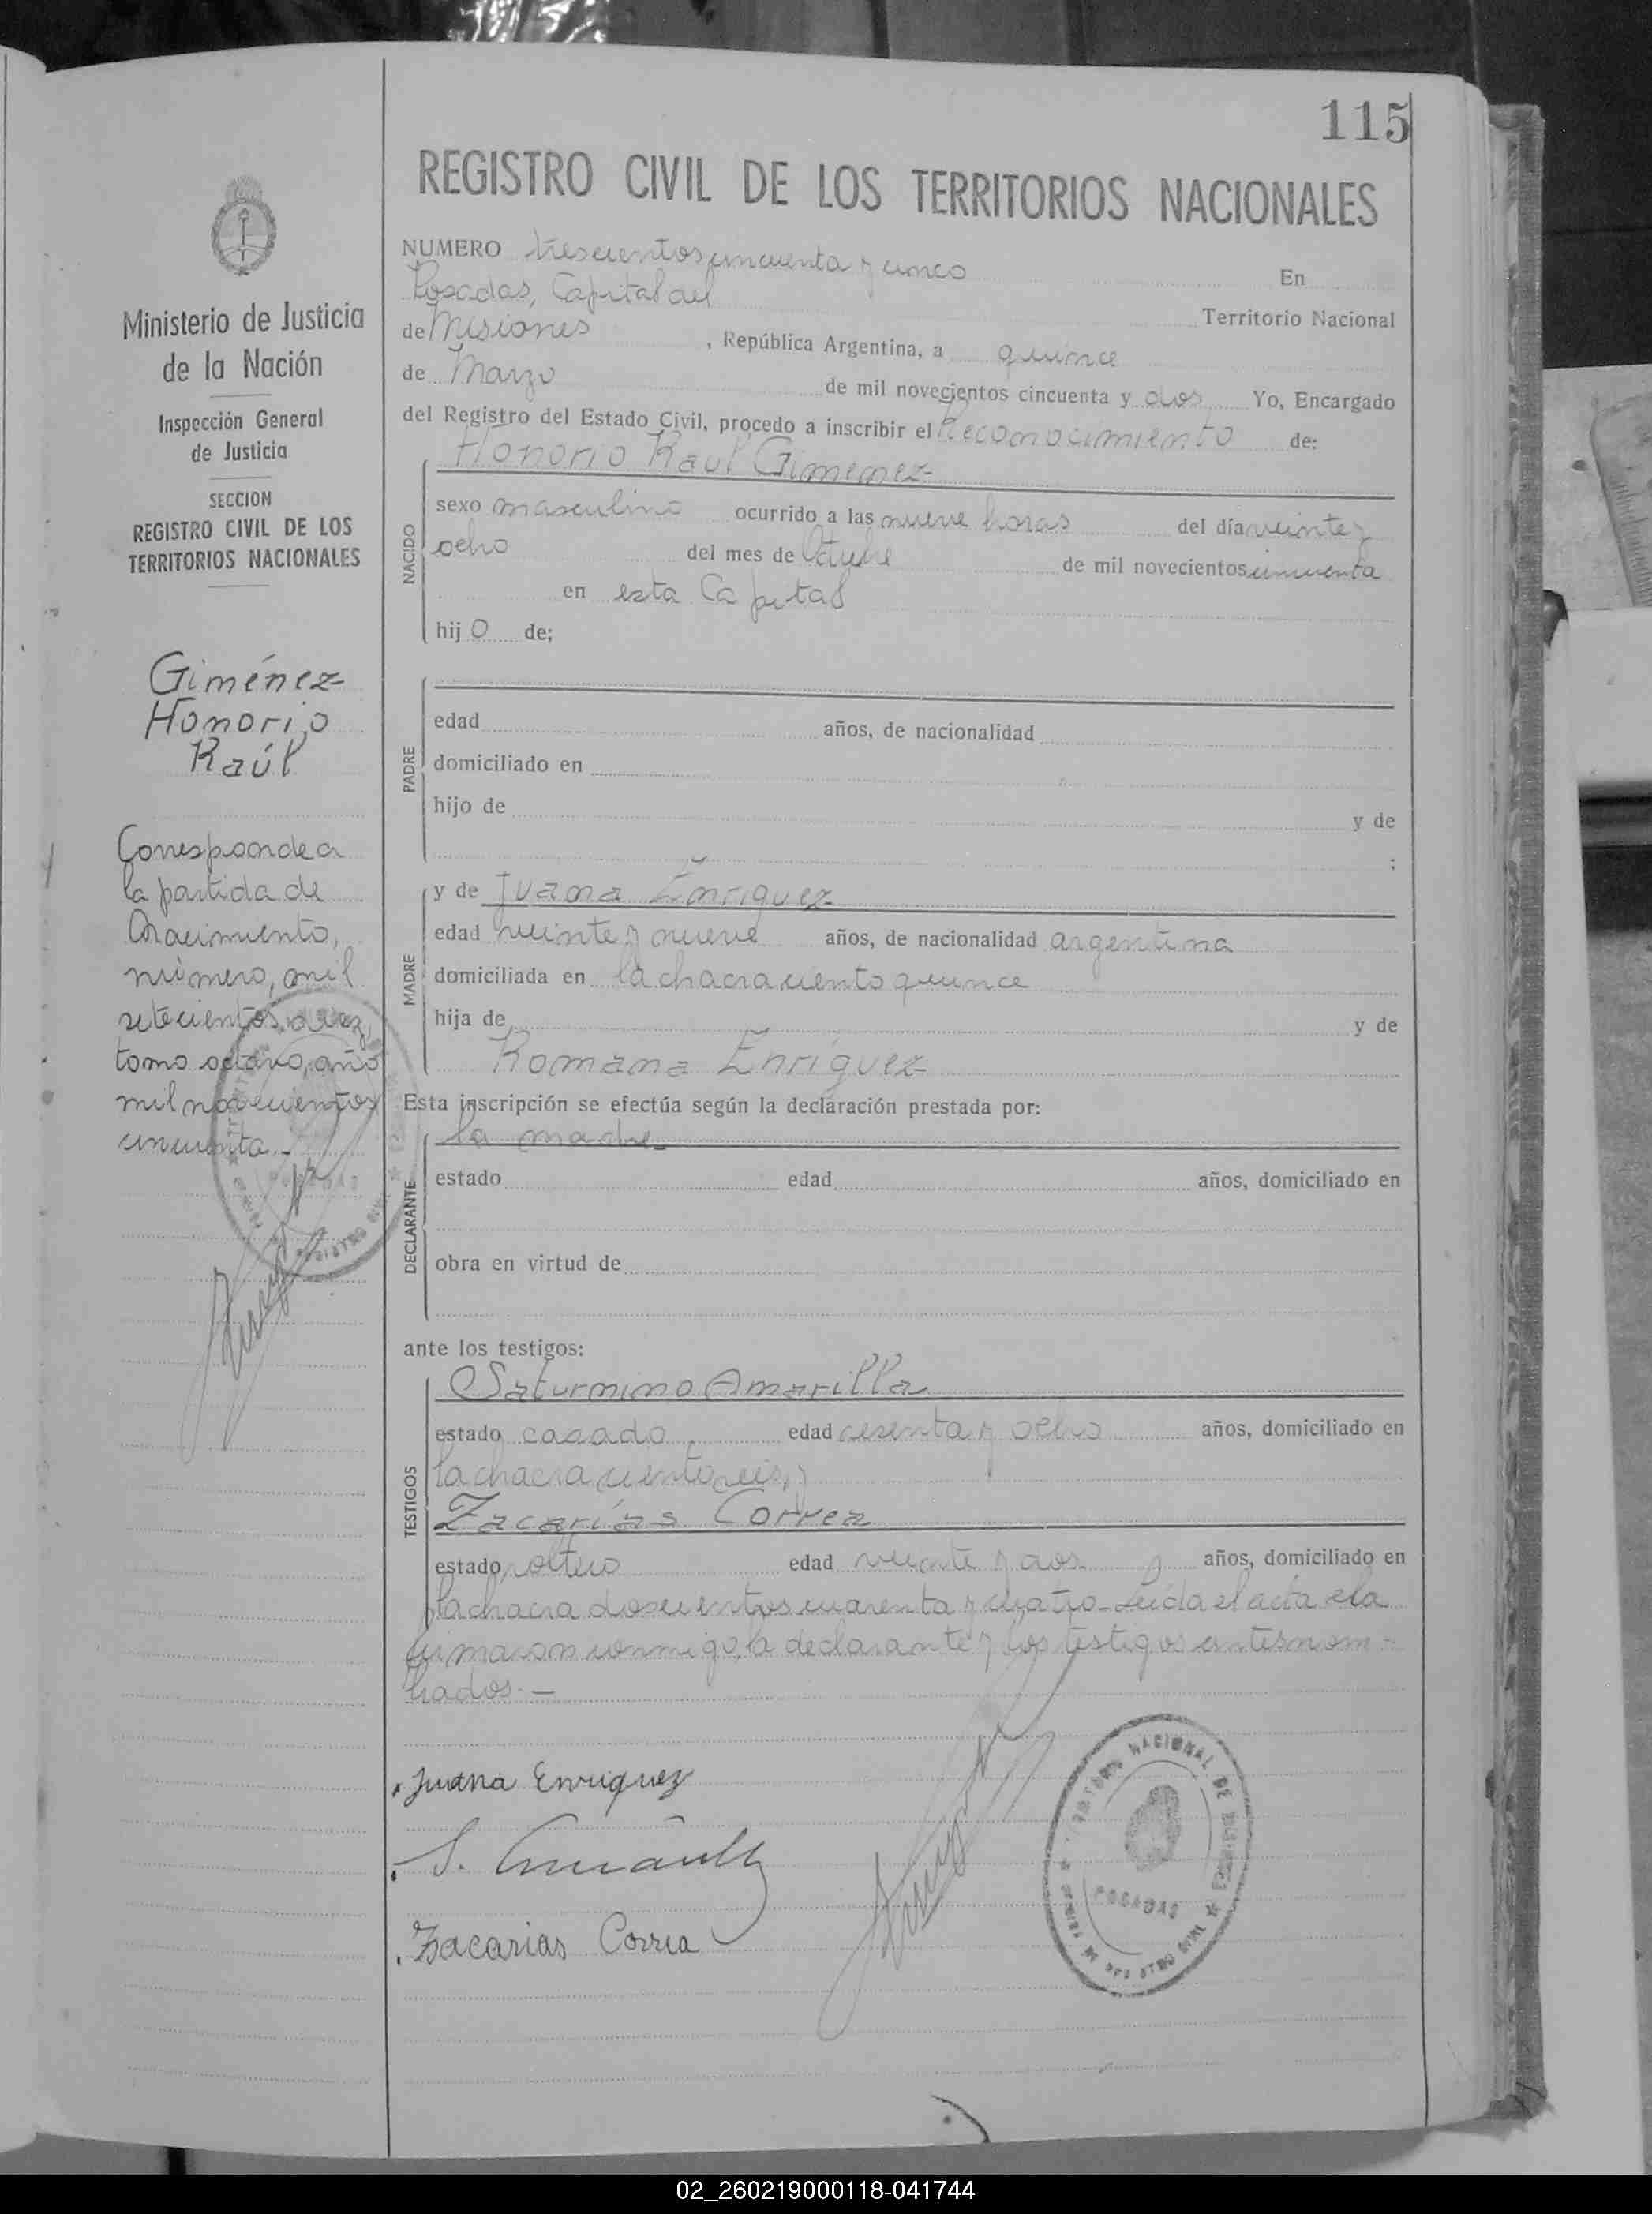 115
REGISTRO CIVIL DE LOS TERRITORIOS NACIONALES
Ministerio de Justicia
de la Nación
Inspección General
de Justicia
SECCION
REGISTRO CIVIL DE LOS
TERRITORIOS NACIONALES
Giménez
Honorio
Raúl
Corresponde a
la partida de
Nacimiento,
número, mil
setecientos diez,
tomo octavo, año
mil novecientos
cincuenta.-
NUMERO trescientos cincuenta y cinco En
Posadas, Capital del Territorio Nacional
de Misiones, República Argentina, a quince
de Marzo de mil novecientos cincuenta y dos Yo, Encargado
del Registro del Estado Civil, procedo a inscribir el Reconocimiento de:
NACIDO
Honorio Raul Gimenez
sexo masculino ocurrido a las nueve horas del día veinte y
ocho del mes de Octubre de mil novecientos cincuenta
en esta Capital
hijo de;
PADRE
edad años, de nacionalidad
domiciliado en
hijo de y de
;
MADRE
y de Juana Enriquez
edad veinte y nueve años, de nacionalidad argentina
domiciliada en la chacra ciento quince
hija de y de
Romana Enríquez
Esta inscripción se efectúa según la declaración prestada por:
DECLARANTE
la madre
estado edad años, domiciliado en
obra en virtud de
ante los testigos:
TESTIGOS
Saturnino Amarilla
estado casado edad sesenta y ocho años, domiciliado en
la chacra ciento seis, y
Zacarías Correa
estado soltero edad veinte y dos años, domiciliado en
la chacra doscientos cuarenta y cuatro- Leída el acta la
firmaron conmigo, la declarante y los testigos antes nom-
brados.-
Juana Enriquez
S.
Zacarias Correa
NACIONAL DE MISIONES
POSADAS
02_260219000118-041744